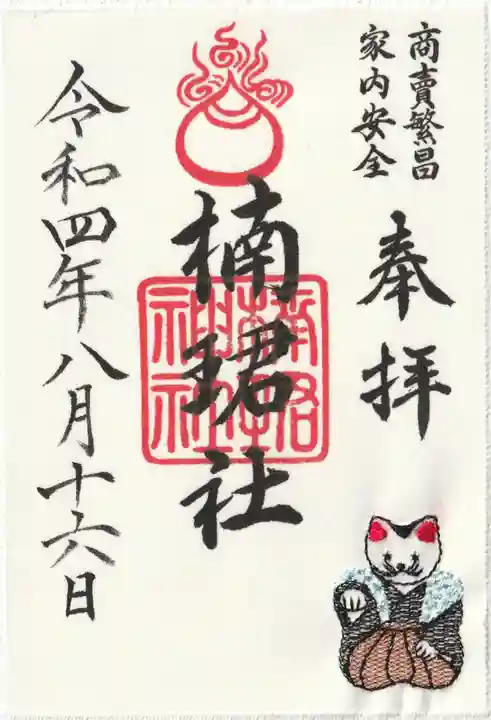 商賣繁昌
家内安全
奉拝
楠珺社
令和四年八月十六日